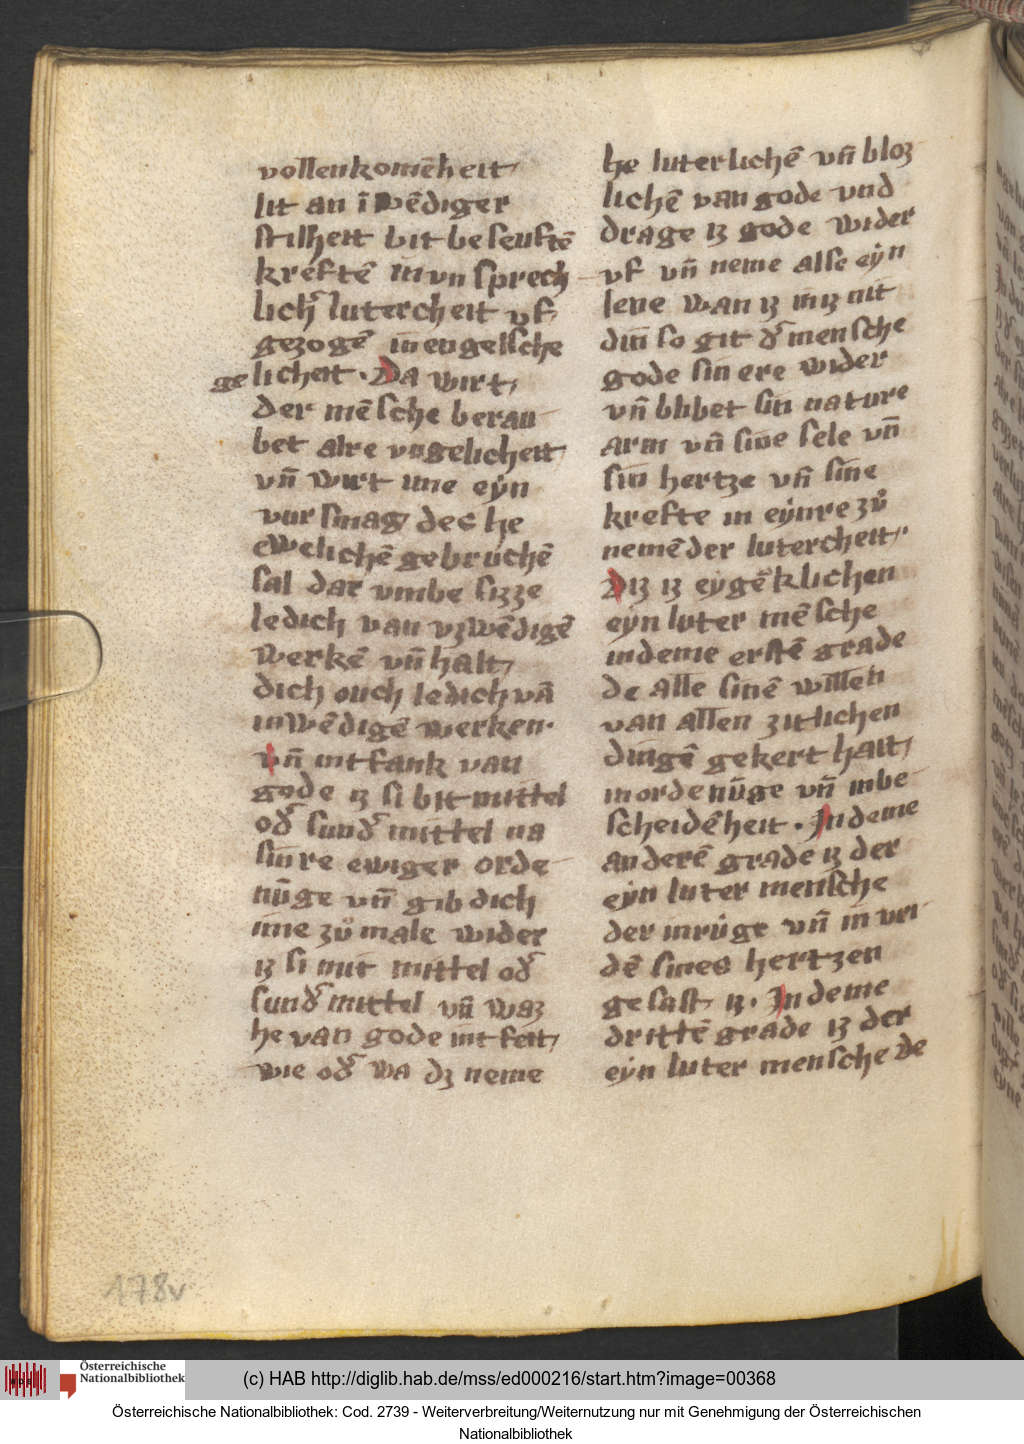 vollenkomēheit
lit an ī wēdiger
stilheit bit beseuftē
kreftē in vnsprech
lichˀ lutercheit vf
gezogē in engelsche
gelicheit. Da wirt
der mēsche berau
bet alre vngelicheit
vn̄ wirt ime eẏn
vursmag des he
ewelichē gebruchē
sal dar vmbe sizze
ledich van vzwēdigē
werkē vn̄ halt
dich ouch ledich vā
inwēdigē werken.
vn̄ intfank van
gode iz si bit mittel
odˀ sundˀ mittel na
sinre ewiger orde
nūge vn̄ gib dich
ime zů male wider
iz si mit mittel odˀ
sundˀ mittel vn̄ waz
he van gode intfeit
wie odˀ wa dz neme
he luterlichē vn̄ bloz
lichē van gode vnd
drage iz gode wider
vf vn̄ neme alse eẏn
lene wan iz in iz nit
din so git dˀ mensche
gode sin ere wider
vn̄ blibet sin nature
arm vn̄ sine sele vn̄
sin hertze vn̄ sine
krefte in eẏnre zů
nemēder lutercheit.
Diz iz eẏgēklichen
eẏn luter mēsche
in deme erstē grade
de alle sinē willen
van allen zitlichen
dingē gekert hait
in ordenūge vn̄ in be
scheidēheit. In deme
anderē grade iz der
eẏn luter mensche
der in rüge vn̄ in vri
dē sines hertzen
gesast iz. In deme
drittē grade iz der
eẏn luter mensche de
178v
Österreichische
Nationalbibliothek
HAB
(c) HAB http://diglib.hab.de/mss/ed000216/start.htm?image=00368
Österreichische Nationalbibliothek: Cod. 2739 - Weiterverbreitung/Weiternutzung nur mit Genehmigung der Österreichischen
Nationalbibliothek